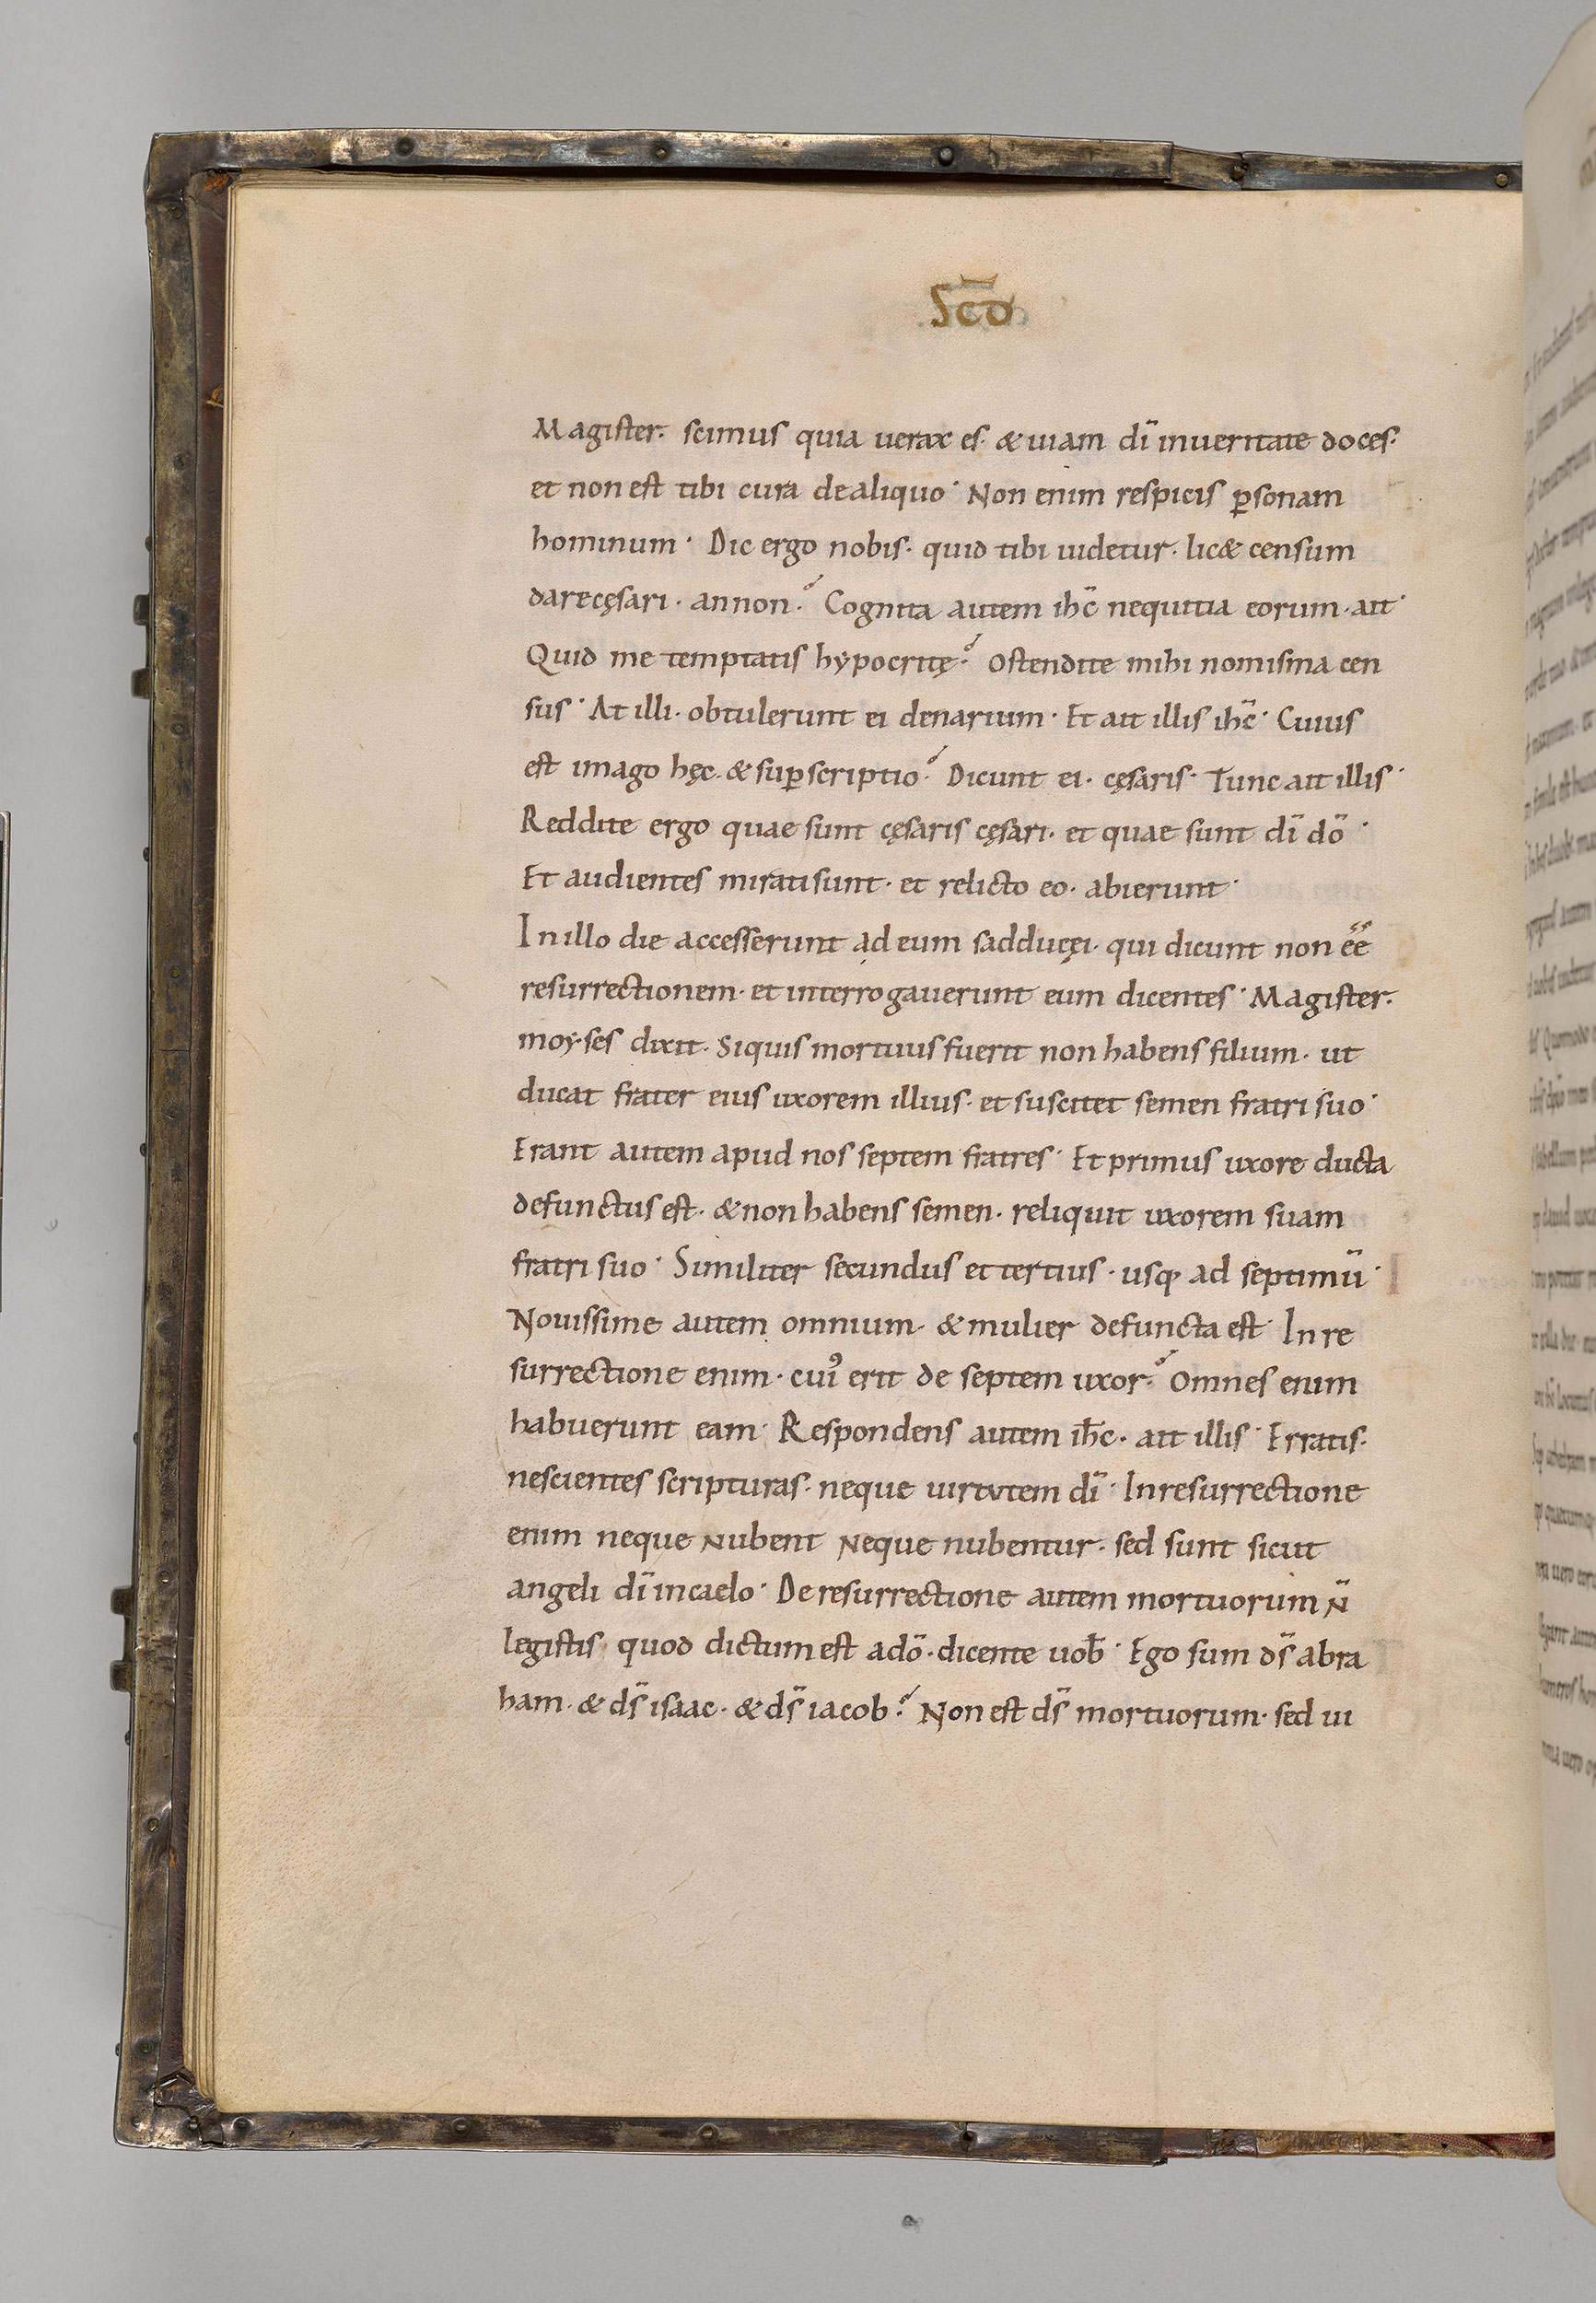 Scd̄
Magister· scimus quia uerax es· & uiam dī inueritate doces·
et non est tibi cura dealiquo· Non enim respicis ꝑsonam
hominum· Dic ergo nobis· quid tibi uidetur· lic& censum
darecęsari· annon? Cognita autem ihc̄ nequitia eorum· ait·
Quid me temptatis hypocritę? Ostendite mihi nomisma cen
sus· At illi· obtulerunt ei denarium· Et ait illis ihc̄· Cuius
est imago hęc· & suꝑscriptio? Dicunt ei· cęsaris· Tunc ait illis·
Reddite ergo quae sunt cęsaris cęsari· et quae sunt dī dō·
Et audientes miratisunt· et relicto eo· abierunt·
In illo die accesserunt ad eum sadducęi· qui dicunt non ēē
resurrectionem· et interrogauerunt eum dicentes· Magister·
moyses dixit· Siquis mortuus fuerit non habens filium· ut
ducat frater eius uxorem illius· et suscitet semen fratri suo·
Erant autem apud nos septem fratres· Et primus uxore ducta
defunctus est· & non habens semen· reliquit uxorem suam
fratri suo· Similiter secundus et tertius· usq· ad septimū·
Nouissime autem omnium· & mulier defuncta est· In re
surrectione enim· cuiꝰ erit de septem uxor? Omnes enim
habuerunt eam· Respondens autem ihc̄· ait illis· Erratis·
nescientes scripturas· neque uirtvtem dī· In resurrectione
enim neque nubent neque nubentur· sed sunt sicut
angeli dī incaelo· De resurrectione autem mortuorum n̄
legistis· quod dictum est adō· dicente uob̄· Ego sum ds̄ abra
ham· & ds̄ isaac· & ds̄ iacob? Non est ds̄ mortuorum· sed ui